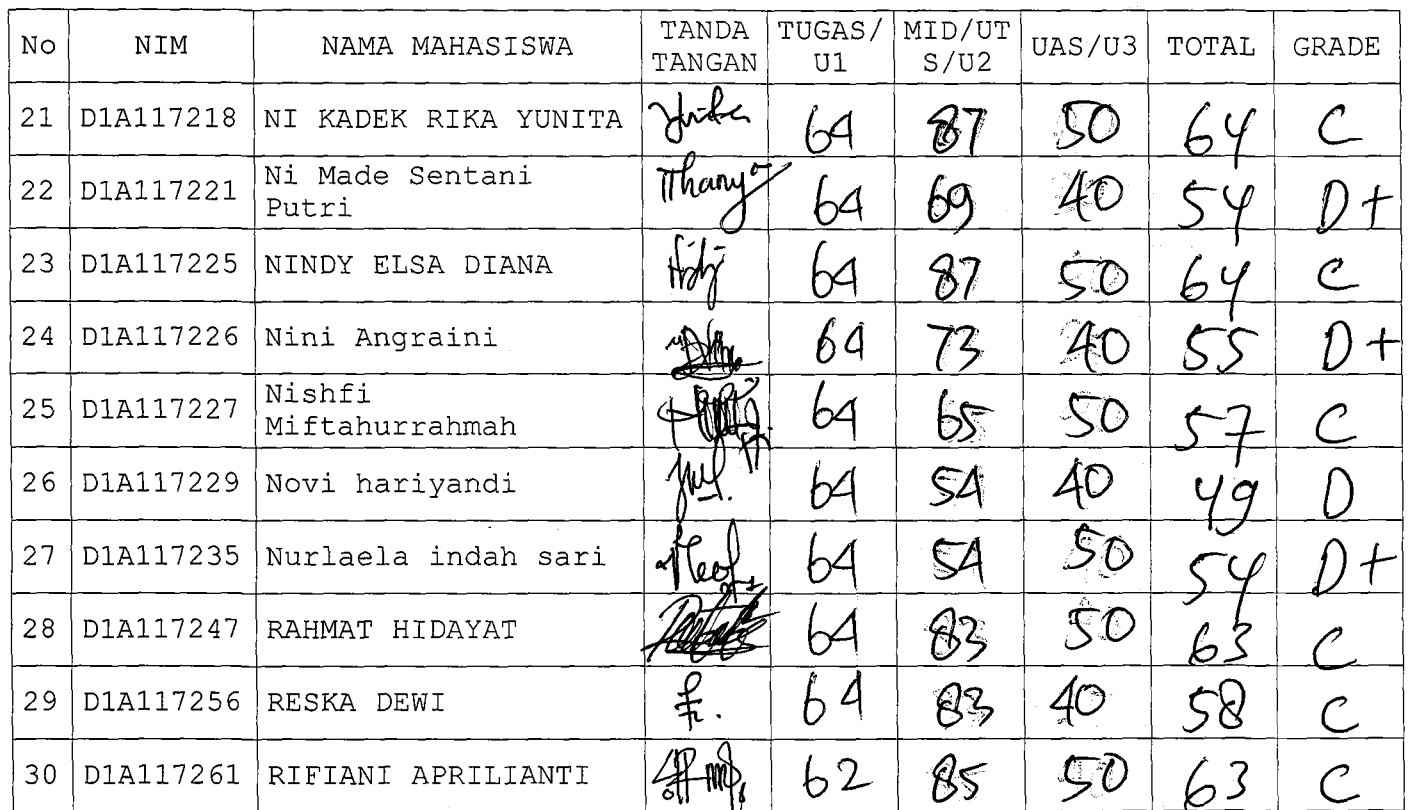 No NIM NAMA MAHASISWA TANDA TANGAN TUGAS/ U1 MID/UT S/U2 UAS/U3 TOTAL GRADE
21 D1A117218 NI KADEK RIKA YUNITA 64 87 50 64 C
22 D1A117221 Ni Made Sentani Putri 64 69 40 54 D+
23 D1A117225 NINDY ELSA DIANA 64 87 50 64 C
24 D1A117226 Nini Angraini 64 73 40 55 D+
25 D1A117227 Nishfi Miftahurrahmah 64 65 50 57 C
26 D1A117229 Novi hariyandi 64 54 40 49 D
27 D1A117235 Nurlaela indah sari 64 54 50 54 D+
28 D1A117247 RAHMAT HIDAYAT 64 83 50 63 C
29 D1A117256 RESKA DEWI 64 83 40 58 C
30 D1A117261 RIFIANI APRILIANTI 62 85 50 63 C